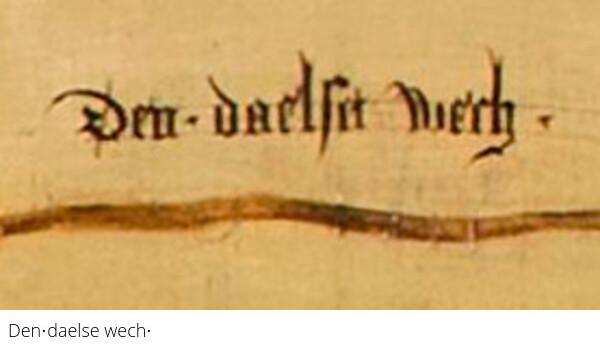 Den·daelsen wech·
Den·daelse wech·